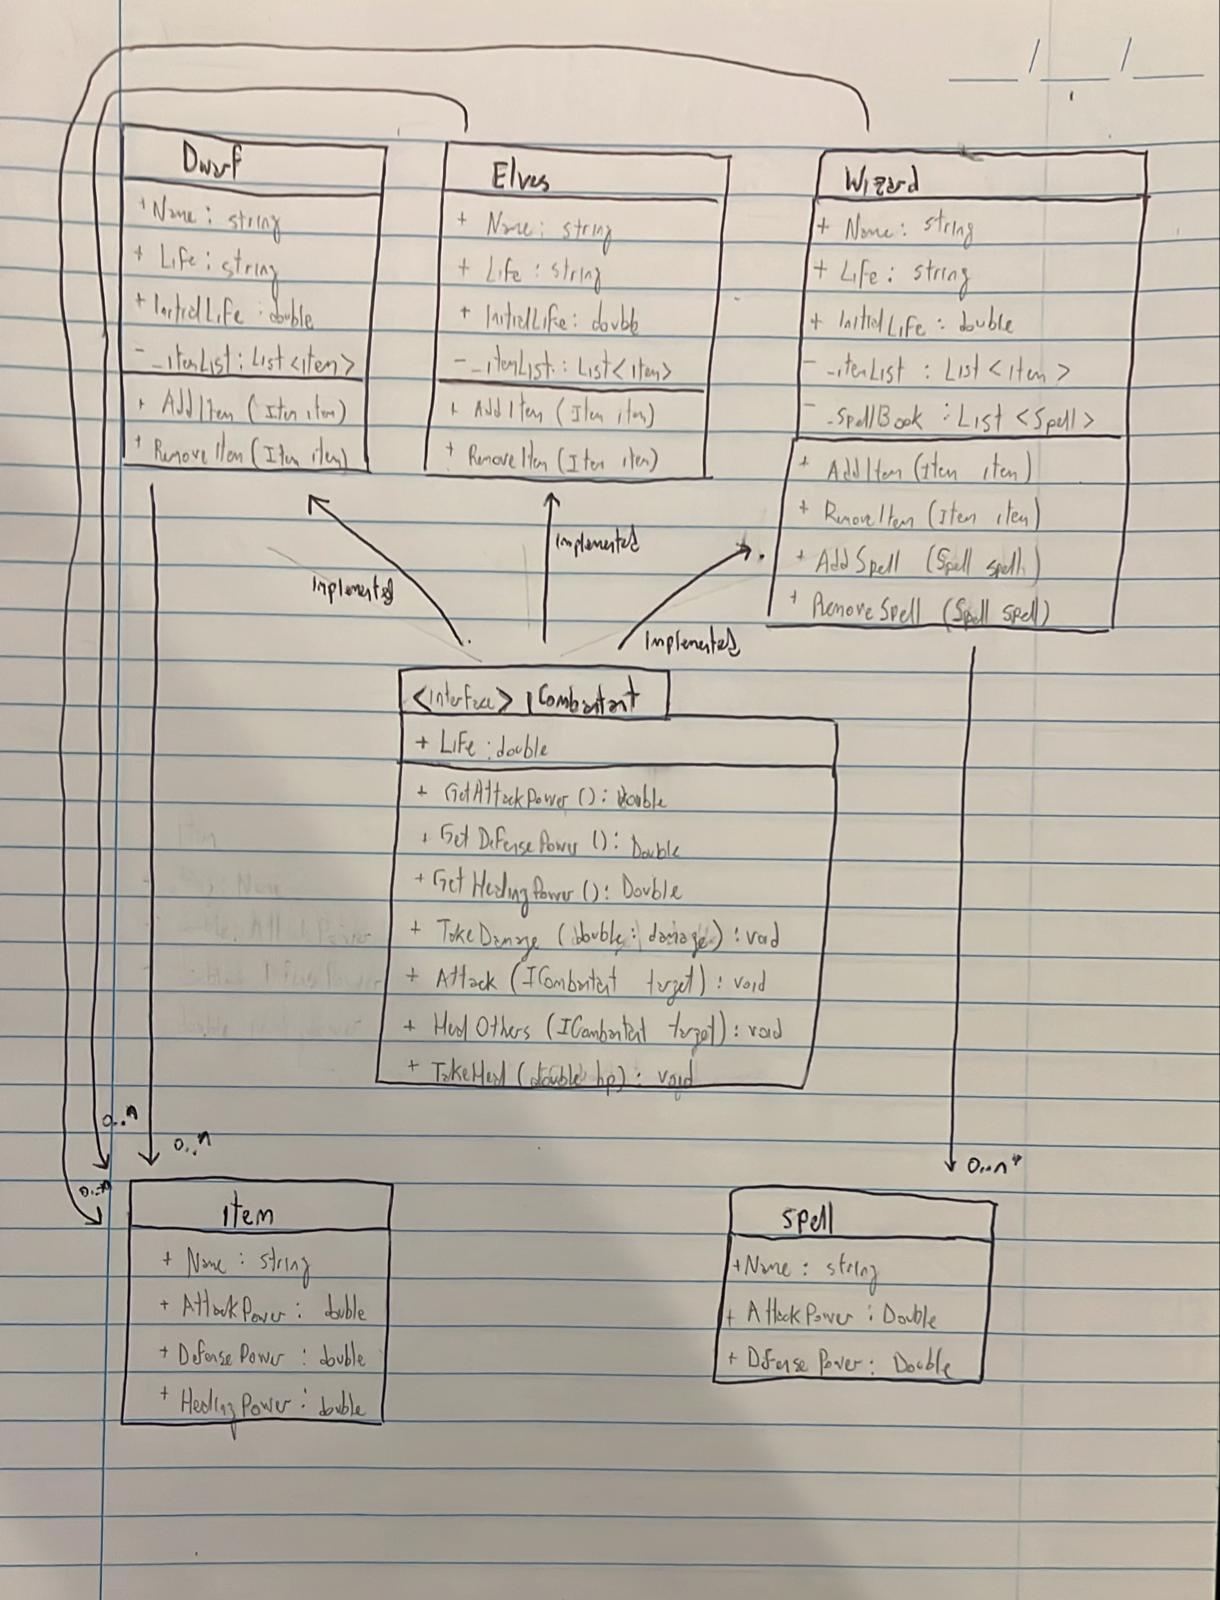 Dwarf
+ Name : string
+ Life : string
+ InitialLife : double
- _itemList : List <item>
+ AddItem (Item item)
+ RemoveItem (Item item)
Elves
+ Name : string
+ Life : string
+ InitialLife : double
- _itemList : List <item>
+ AddItem (Item item)
+ RemoveItem (Item item)
Wizard
+ Name : string
+ Life : string
+ InitialLife : double
- _itemList : List <item>
- _SpellBook : List <Spell>
+ AddItem (Item item)
+ RemoveItem (Item item)
+ AddSpell (Spell spell)
+ RemoveSpell (Spell spell)
implemented
implemented
implemented
<interface> ICombantant
+ Life : double
+ GetAttackPower () : Double
+ Get DefensePower () : Double
+ Get HealingPower () : Double
+ TakeDamage (double : damage) : void
+ Attack (ICombantant target) : void
+ Heal Others (ICombantant target) : void
+ TakeHeal (double hp) : void
0..n
0..n
0..n
0..n*
item
+ Name : string
+ AttackPower : double
+ DefensePower : double
+ HealingPower : double
Spell
+ Name : string
+ AttackPower : Double
+ Defense Power : Double